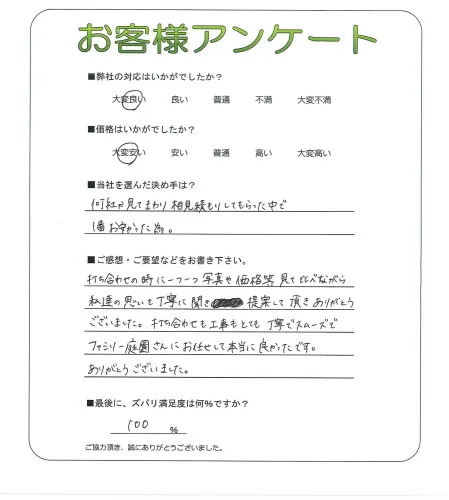 お客様アンケート
■弊社の対応はいかがでしたか？
大変良い 良い 普通 不満 大変不満
■価格はいかがでしたか？
大変安い 安い 普通 高い 大変高い
■当社を選んだ決め手は？
何社か見てまわり相見積もりしてもらった中で
1番お安かった為。
■ご感想・ご要望などをお書き下さい。
打ち合わせの時に一つ一つ写真や価格等見て比べながら
私達の思いを丁寧に聞き 提案して頂きありがとう
ございました。打ち合わせも工事もとても丁寧でスムーズで
ファミリー庭園さんにお任せして本当に良かったです。
ありがとうございました。
■最後に、ズバリ満足度は何%ですか？
100 %
ご協力頂き、誠にありがとうございました。